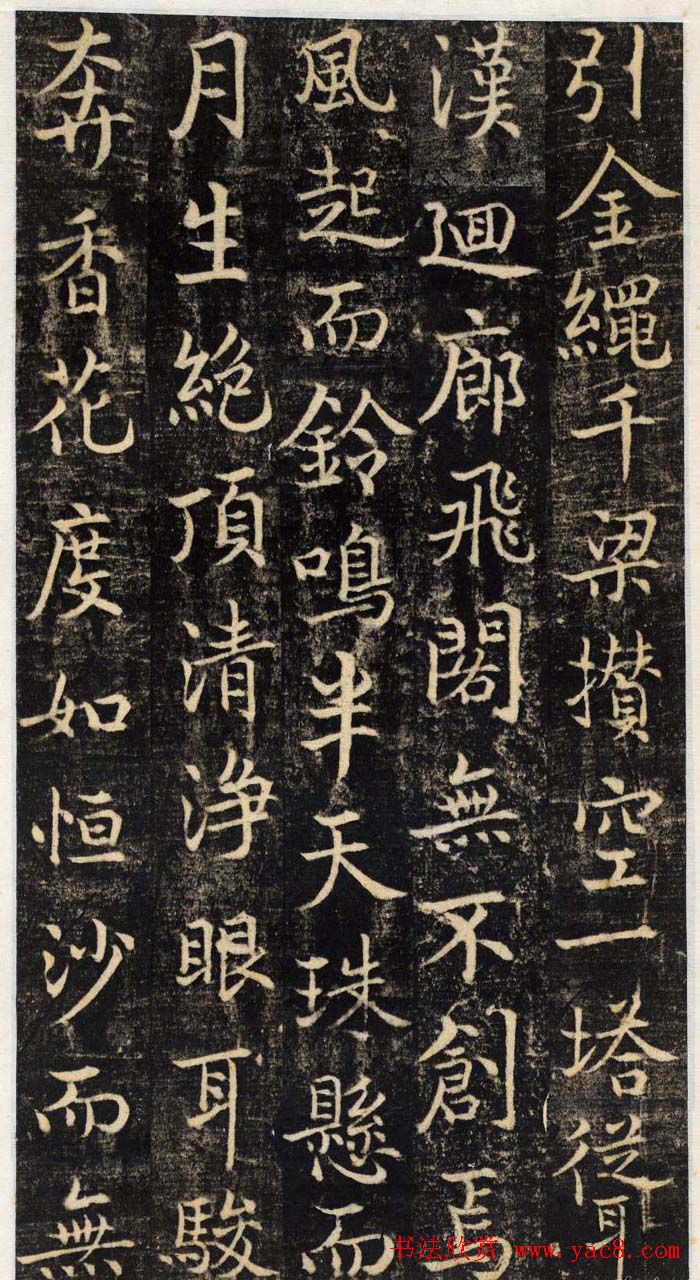 引金繩千梁攢空一塔聳
漢廻廊飛閣無不創焉
風起而鈴鳴半天珠懸而
月生絶頂清淨眼耳駿
奔香花度如恒沙而無
书法欣赏 www.yac8.com